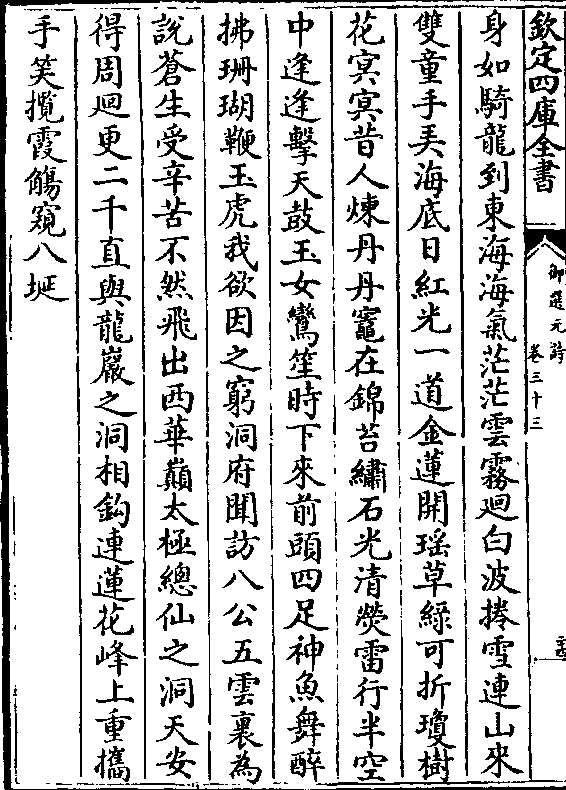 欽定四庫全書
御選元詩
卷三十三
身如騎龍到東海海氣茫茫雲霧廻白波捲雪連山來
雙童手弄海底日紅光一道金蓮開瑶草綠可折瓊樹
花冥冥昔人煉丹丹竈在錦苔繡石光清熒雷行半空
中逢逢擊天鼓玉女鸞笙時下來前頭四足神魚舞醉
拂珊瑚鞭玉虎我欲因之窮洞府聞訪八公五雲裏為
說蒼生受辛苦不然飛出西華巔太極總仙之洞天安
得周廻更二千直與龍巖之洞相鈎連蓮花峰上重攜
手笑攬霞觴窺八埏